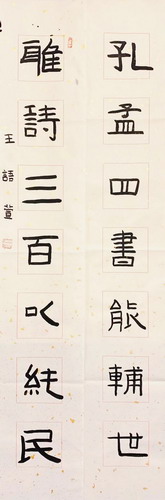 孔孟四書能輔世
雅詩三百以純民
王語萱